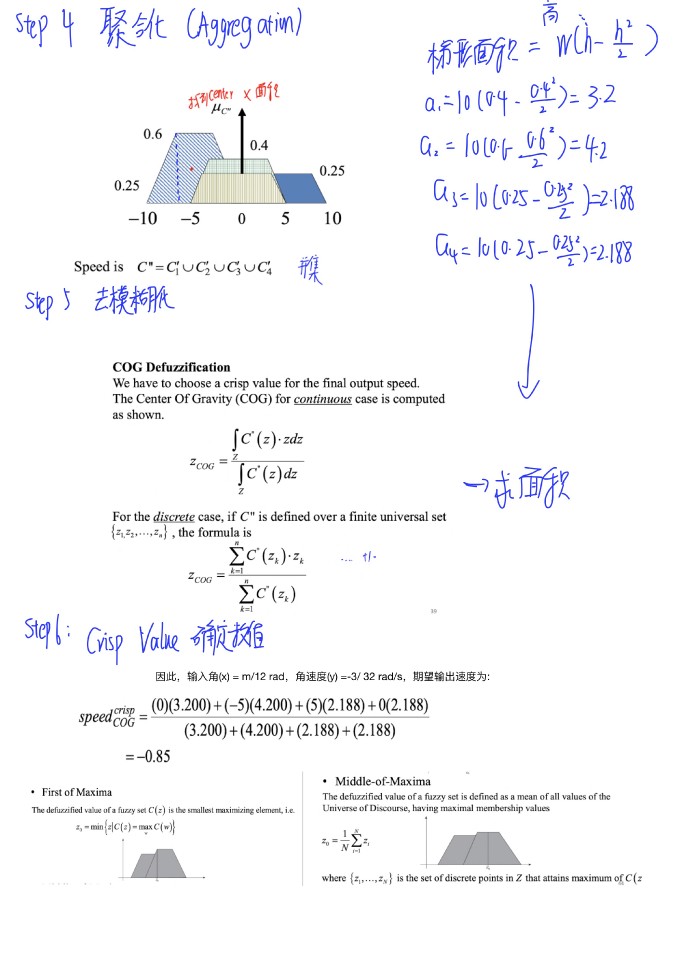 Step 4 聚合化 (Aggregation)
高
梯形面积 = w(h - h²/2)
a₁=10(0.4 - 0.4²/2)=3.2
a₂=10(0.6 - 0.6²/2)=4.2
a₃=10(0.25 - 0.25²/2)=2.188
a₄=10(0.25 - 0.25²/2)=2.188
找到center × 面积
μC"
0.6
0.4
0.25
0.25
−10 −5 0 5 10
Speed is C"=C₁′∪C₂′∪C₃′∪C₄′ 并集
Step 5 去模糊化
COG Defuzzification
We have to choose a crisp value for the final output speed.
The Center Of Gravity (COG) for continuous case is computed
as shown.
z_COG = ∫_Z C"(z)·zdz / ∫_Z C"(z)dz
→ 求面积
For the discrete case, if C" is defined over a finite universal set
{z₁,z₂,…,zₙ} , the formula is
z_COG = ∑_{k=1}^{n} C"(z_k)·z_k / ∑_{k=1}^{n} C"(z_k)
Step 6: Crisp Value 确定数值
因此，输入角(x) = m/12 rad，角速度(y) =-3/ 32 rad/s，期望输出速度为:
speed_COG^crisp = (0)(3.200)+(−5)(4.200)+(5)(2.188)+0(2.188) / (3.200)+(4.200)+(2.188)+(2.188)
= −0.85
• First of Maxima
The defuzzified value of a fuzzy set C(z) is the smallest maximizing element, i.e.
z₀ = min{z|C(z) = max_w C(w)}
• Middle-of-Maxima
The defuzzified value of a fuzzy set is defined as a mean of all values of the
Universe of Discourse, having maximal membership values
z₀ = 1/N ∑_{i=1}^{N} z_i
where {z₁,…,z_N} is the set of discrete points in Z that attains maximum of C(z